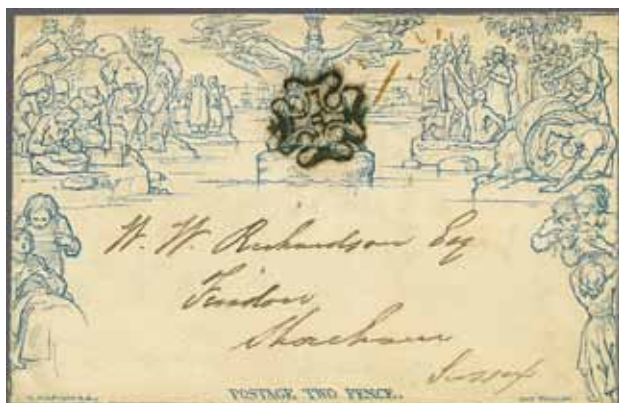 W. W. Richardson Esq
Findon
Shoreham
Sussex
POSTAGE TWO PENCE.